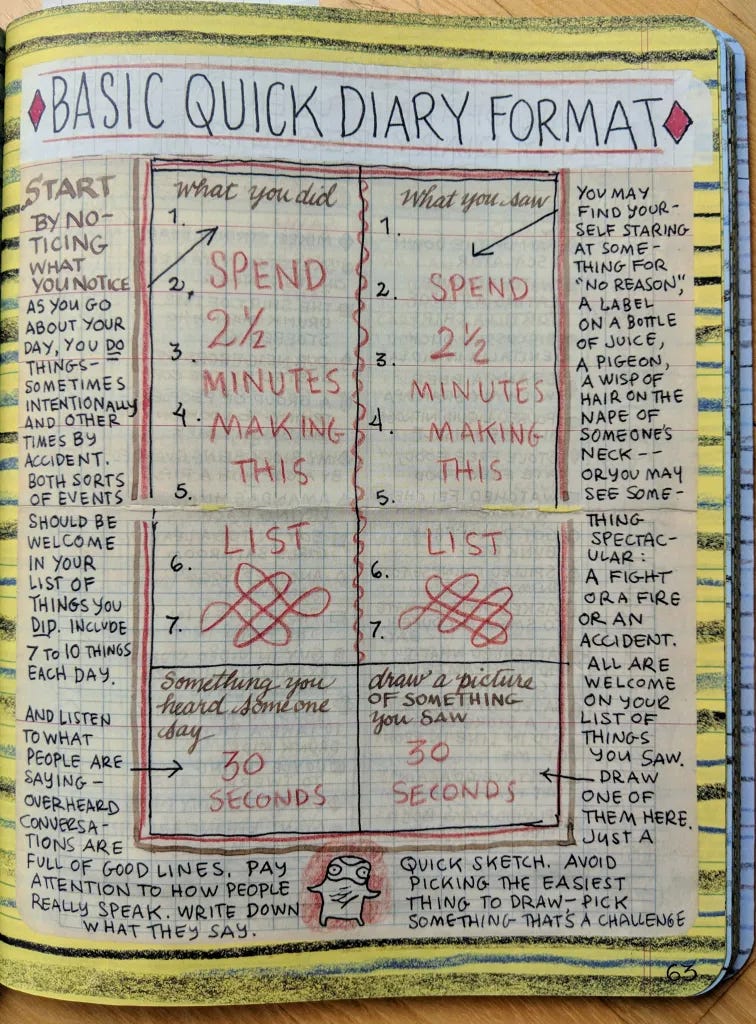 BASIC QUICK DIARY FORMAT
START
BY NO-
TICING
WHAT
YOU NOTICE
AS YOU GO
ABOUT YOUR
DAY, YOU DO
THINGS—
SOMETIMES
INTENTIONALLY
AND OTHER
TIMES BY
ACCIDENT.
BOTH SORTS
OF EVENTS
SHOULD BE
WELCOME
IN YOUR
LIST OF
THINGS YOU
DID. INCLUDE
7 TO 10 THINGS
EACH DAY.
AND LISTEN
TO WHAT
PEOPLE ARE
SAYING —
OVERHEARD
CONVERSA-
TIONS ARE
FULL OF GOOD LINES, PAY
ATTENTION TO HOW PEOPLE
REALLY SPEAK. WRITE DOWN
WHAT THEY SAY.
what you did
1.
2.
3.
4.
5.
6.
7.
SPEND
2½
MINUTES
MAKING
THIS
LIST
What you saw
1.
2.
3.
4.
5.
6.
7.
SPEND
2½
MINUTES
MAKING
THIS
LIST
Something you
heard someone
say
30
SECONDS
draw a picture
OF SOMETHING
you SAW
30
SECONDS
YOU MAY
FIND YOUR-
SELF STARING
AT SOME-
THING FOR
"NO REASON",
A LABEL
ON A BOTTLE
OF JUICE,
A PIGEON,
A WISP OF
HAIR ON THE
NAPE OF
SOMEONE'S
NECK --
OR YOU MAY
SEE SOME-
THING
SPECTAC-
ULAR:
A FIGHT
OR A FIRE
OR AN
ACCIDENT.
ALL ARE
WELCOME
ON YOUR
LIST OF
THINGS
YOU SAW.
DRAW
ONE OF
THEM HERE.
JUST A
QUICK SKETCH. AVOID
PICKING THE EASIEST
THING TO DRAW— PICK
SOMETHING THAT'S A CHALLENGE
63